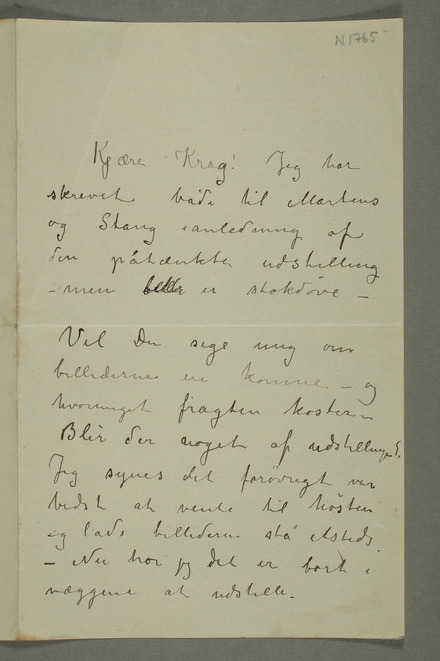 N 1765
Kjære Krag! Jeg har
skrevet både til Martens
og Stang i anledning af
den påtænkte udstilling
– men begge er stokdøve –
Vil Du sige mig om
billederne ere komne – og
hvormeget fragten koster –
Blir der noget af udstillingen?
Jeg synes det forøvrigt var
bedst at vente til høsten
og lade billederne stå etsteds
– Nu tror jeg det er bort i
væggene at udstille.